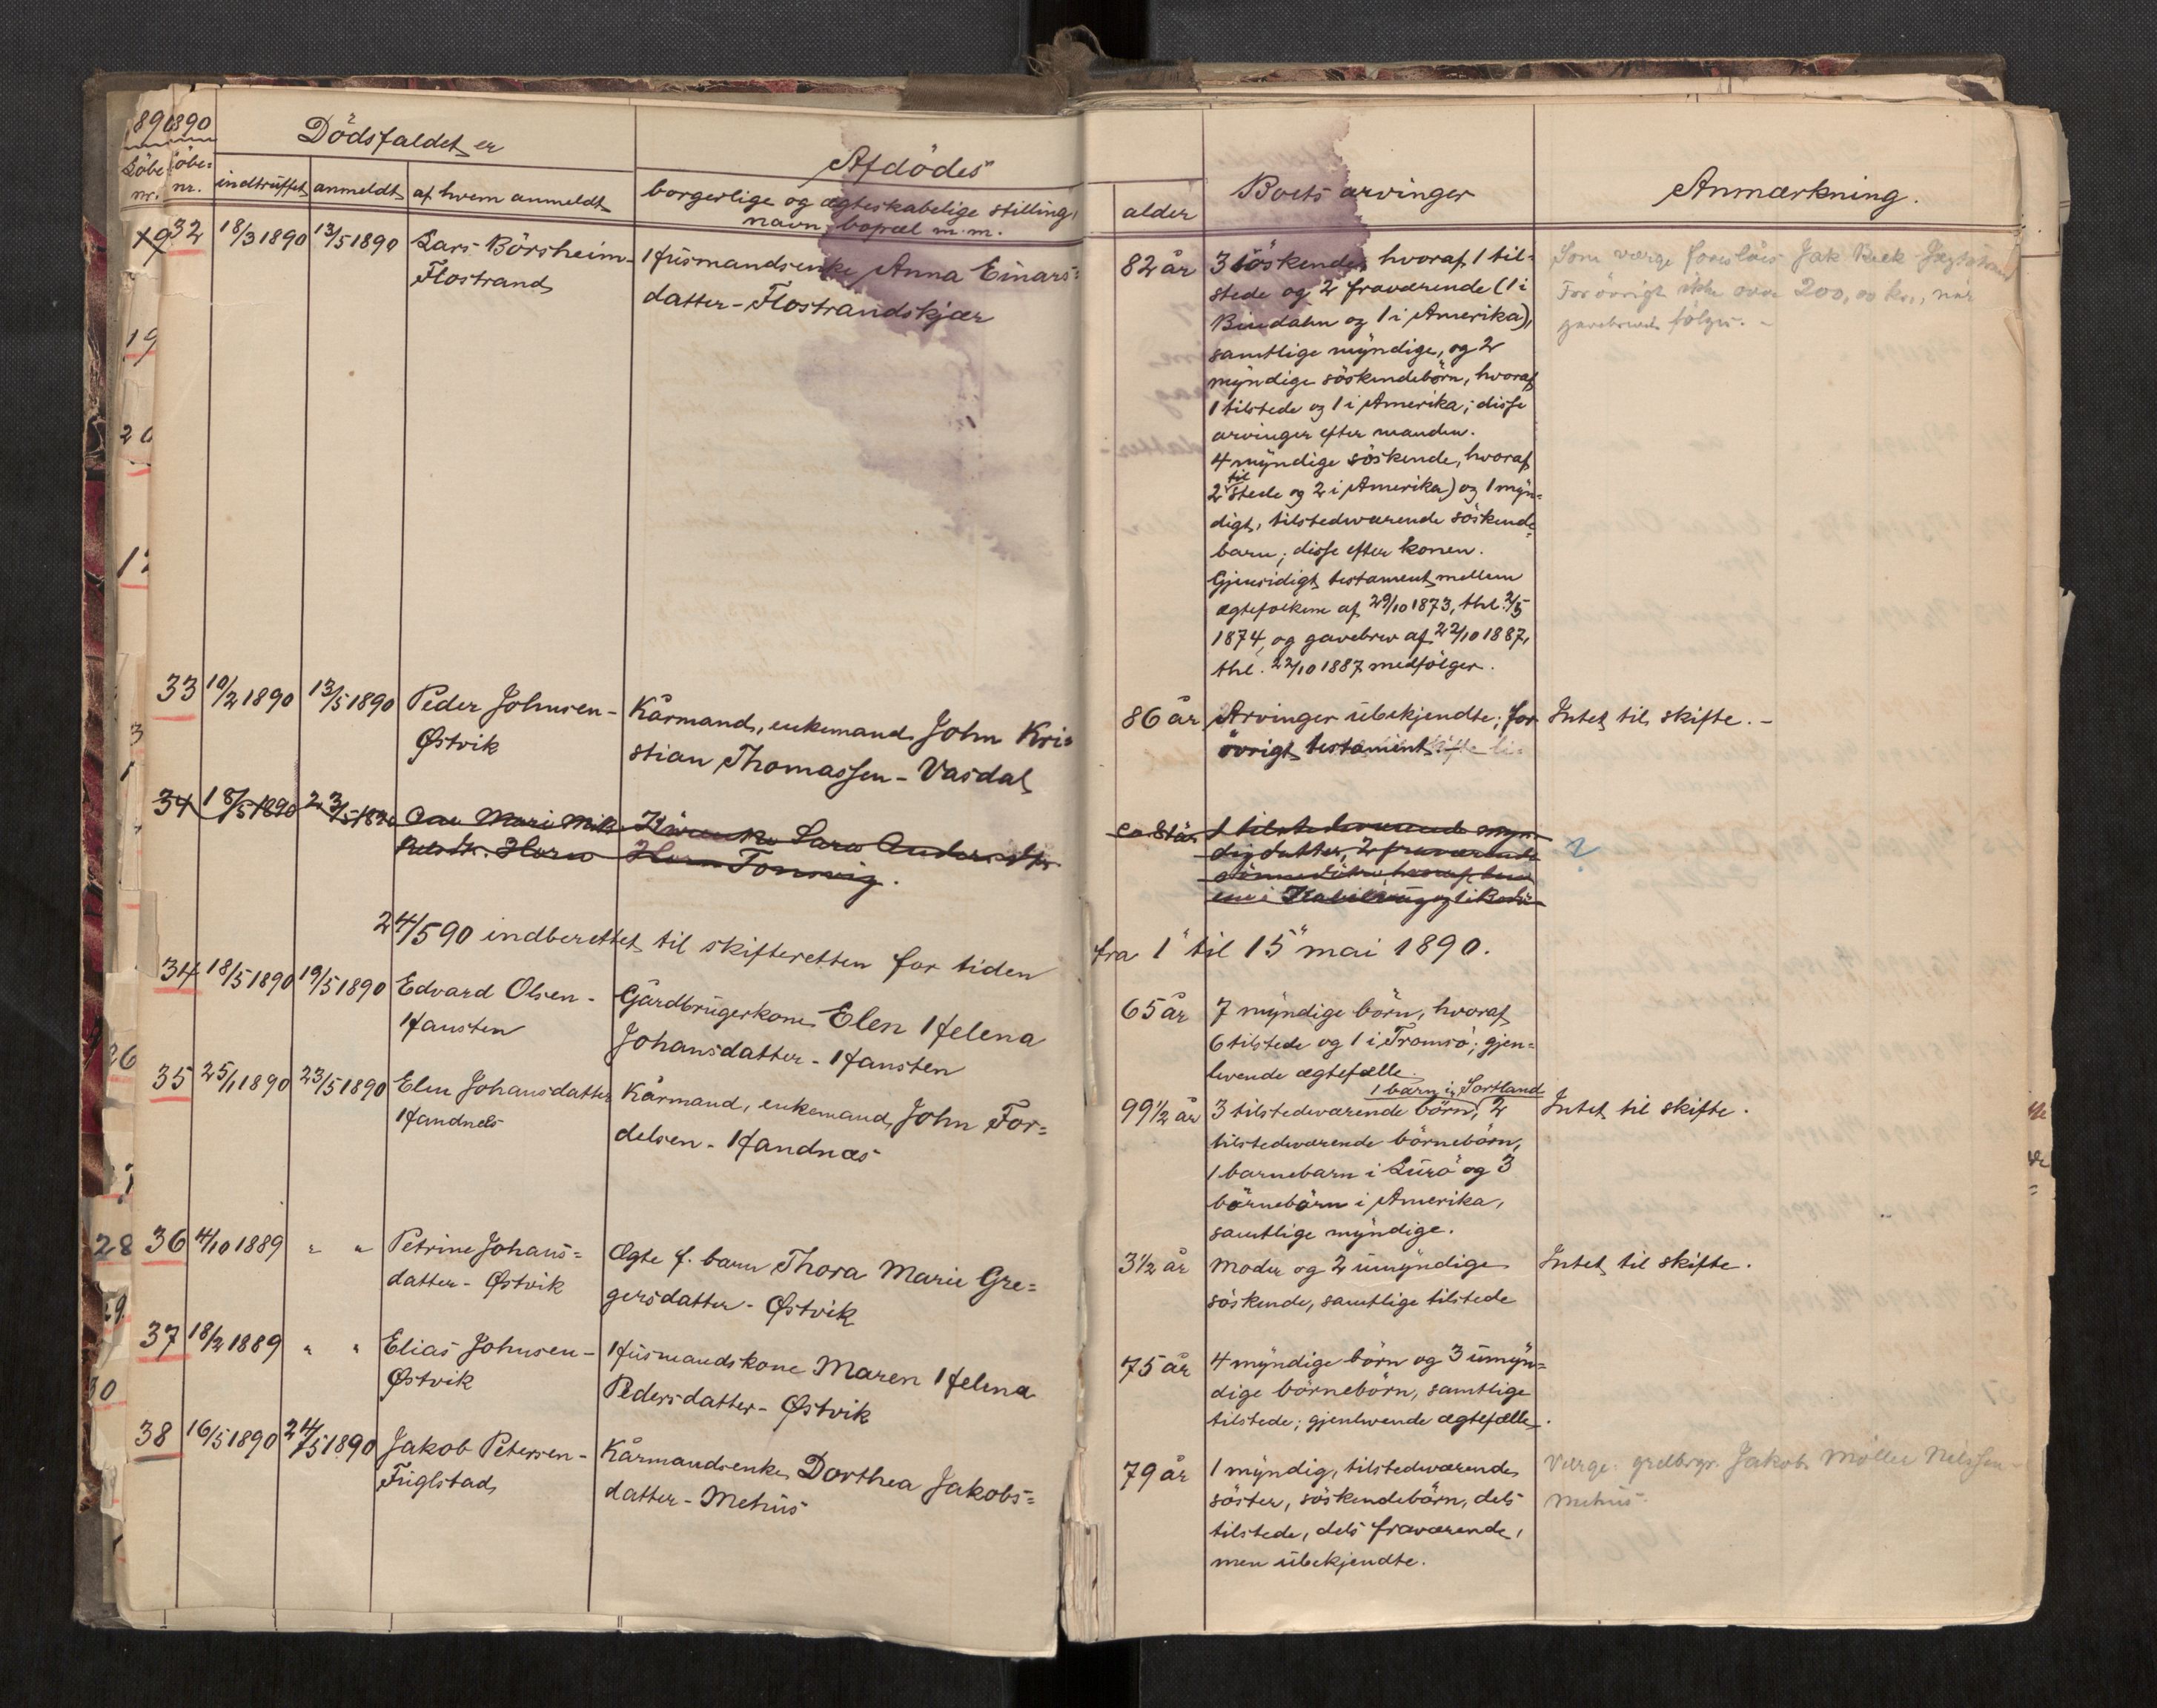 1890
Dödsfaldet er
Afdödes
Boets arvinger
Anmærkning.
Löbe nr.
indtruffet
anmeldt
af hvem anmeldt
borgerlige og ægteskabelige stilling,
navn, bopæl m. m.
alder
32 18/3 1890 13/5 1890 Lars Börsheim- Husmandsenke Anna Einars=
Flostrand datter - Flostrandskjær
82 år 3 söskende, hvoraf 1 til-
stede og 2 fraværende (1 i
Bindaln og 1 i Amerika),
samtlige myndige, og 2
myndige söskendebörn, hvoraf
1 tilstede og 1 i Amerika; disse
arvinger efter manden.
4 myndige söskende, hvoraf
2 tilstede og 2 i Amerika) og 1 myn=
digt, tilstedeværende söskende=
barn; disse efter konen.
Gjensidigt testament mellem
ægtefolkene af 29/10 1873, thl. 2/5
1874, og gavebrev af 22/10 1887,
thl. 22/10 1887 medfölger.
Som værge foreslåes Jak
Forövrigt ikke over 200,00 kr., når
gavebrevet fölges. -
33 10/2 1890 13/5 1890 Peder Johnsen- Kårmand, enkemand John Kri=
Østvik stian Thomassen - Vasdal
86 år Arvinger ubekjendte; for Intet til skifte. -
övrigt testament.
34 18/5 1890 23/5 1890 Mari Kårenke Sara Anders dtr.
Horn Horn Tonvig.
1 tilstedeværende myn-
dig datter, 2 fraværende
?
24/5 90 indberettet til skifteretten for tiden fra 1" til 15" mai 1890.
34 18/5 1890 19/5 1890 Edvard Olsen- Gårdbrugerkone Elen Helena
Hausten Johansdatter - Hausten
65 år 7 myndige börn, hvoraf
6 tilstede og 1 i Tromsö; gjen=
levende ægtefælle.
35 25/1 1890 23/5 1890 Elen Johansdatter Kårmand, enkemand John For=
Handnes delsen - Handnæs
1 barn i Sortland
99 1/2 år 3 tilstedeværende börn, 2 Intet til skifte.
tilstedeværende börnebörn,
1 barnebarn i Lurö og 3
börnebörn i Amerika,
samtlige myndige.
36 4/10 1889 " " Petrine Johans= Ægte f. barn Thora Marie Gre=
datter - Østvik gersdatter - Østvik
3 1/2 år Moder og 2 umyndige Intet til skifte.
söskende, samtlige tilstede
37 18/2 1889 " " Elias Johnsen- Husmandskone Maren Helena
Østvik Pedersdatter - Østvik
75 år 4 myndige börn og 3 umyn=
dige börnebörn, samtlige
tilstede; gjenlevende ægtefælle.
38 16/5 1890 24/5 1890 Jakob Petersen- Kårmandsenke Dorthea Jakobs=
Fuglstad datter - Mehus
79 år 1 myndig, tilstedeværende
söster, söskendebörn, dels
tilstede, dels fraværende,
men ubekjendte.
Værge: grdbrgr. Jakob Möller Nelssen -
Mehus.